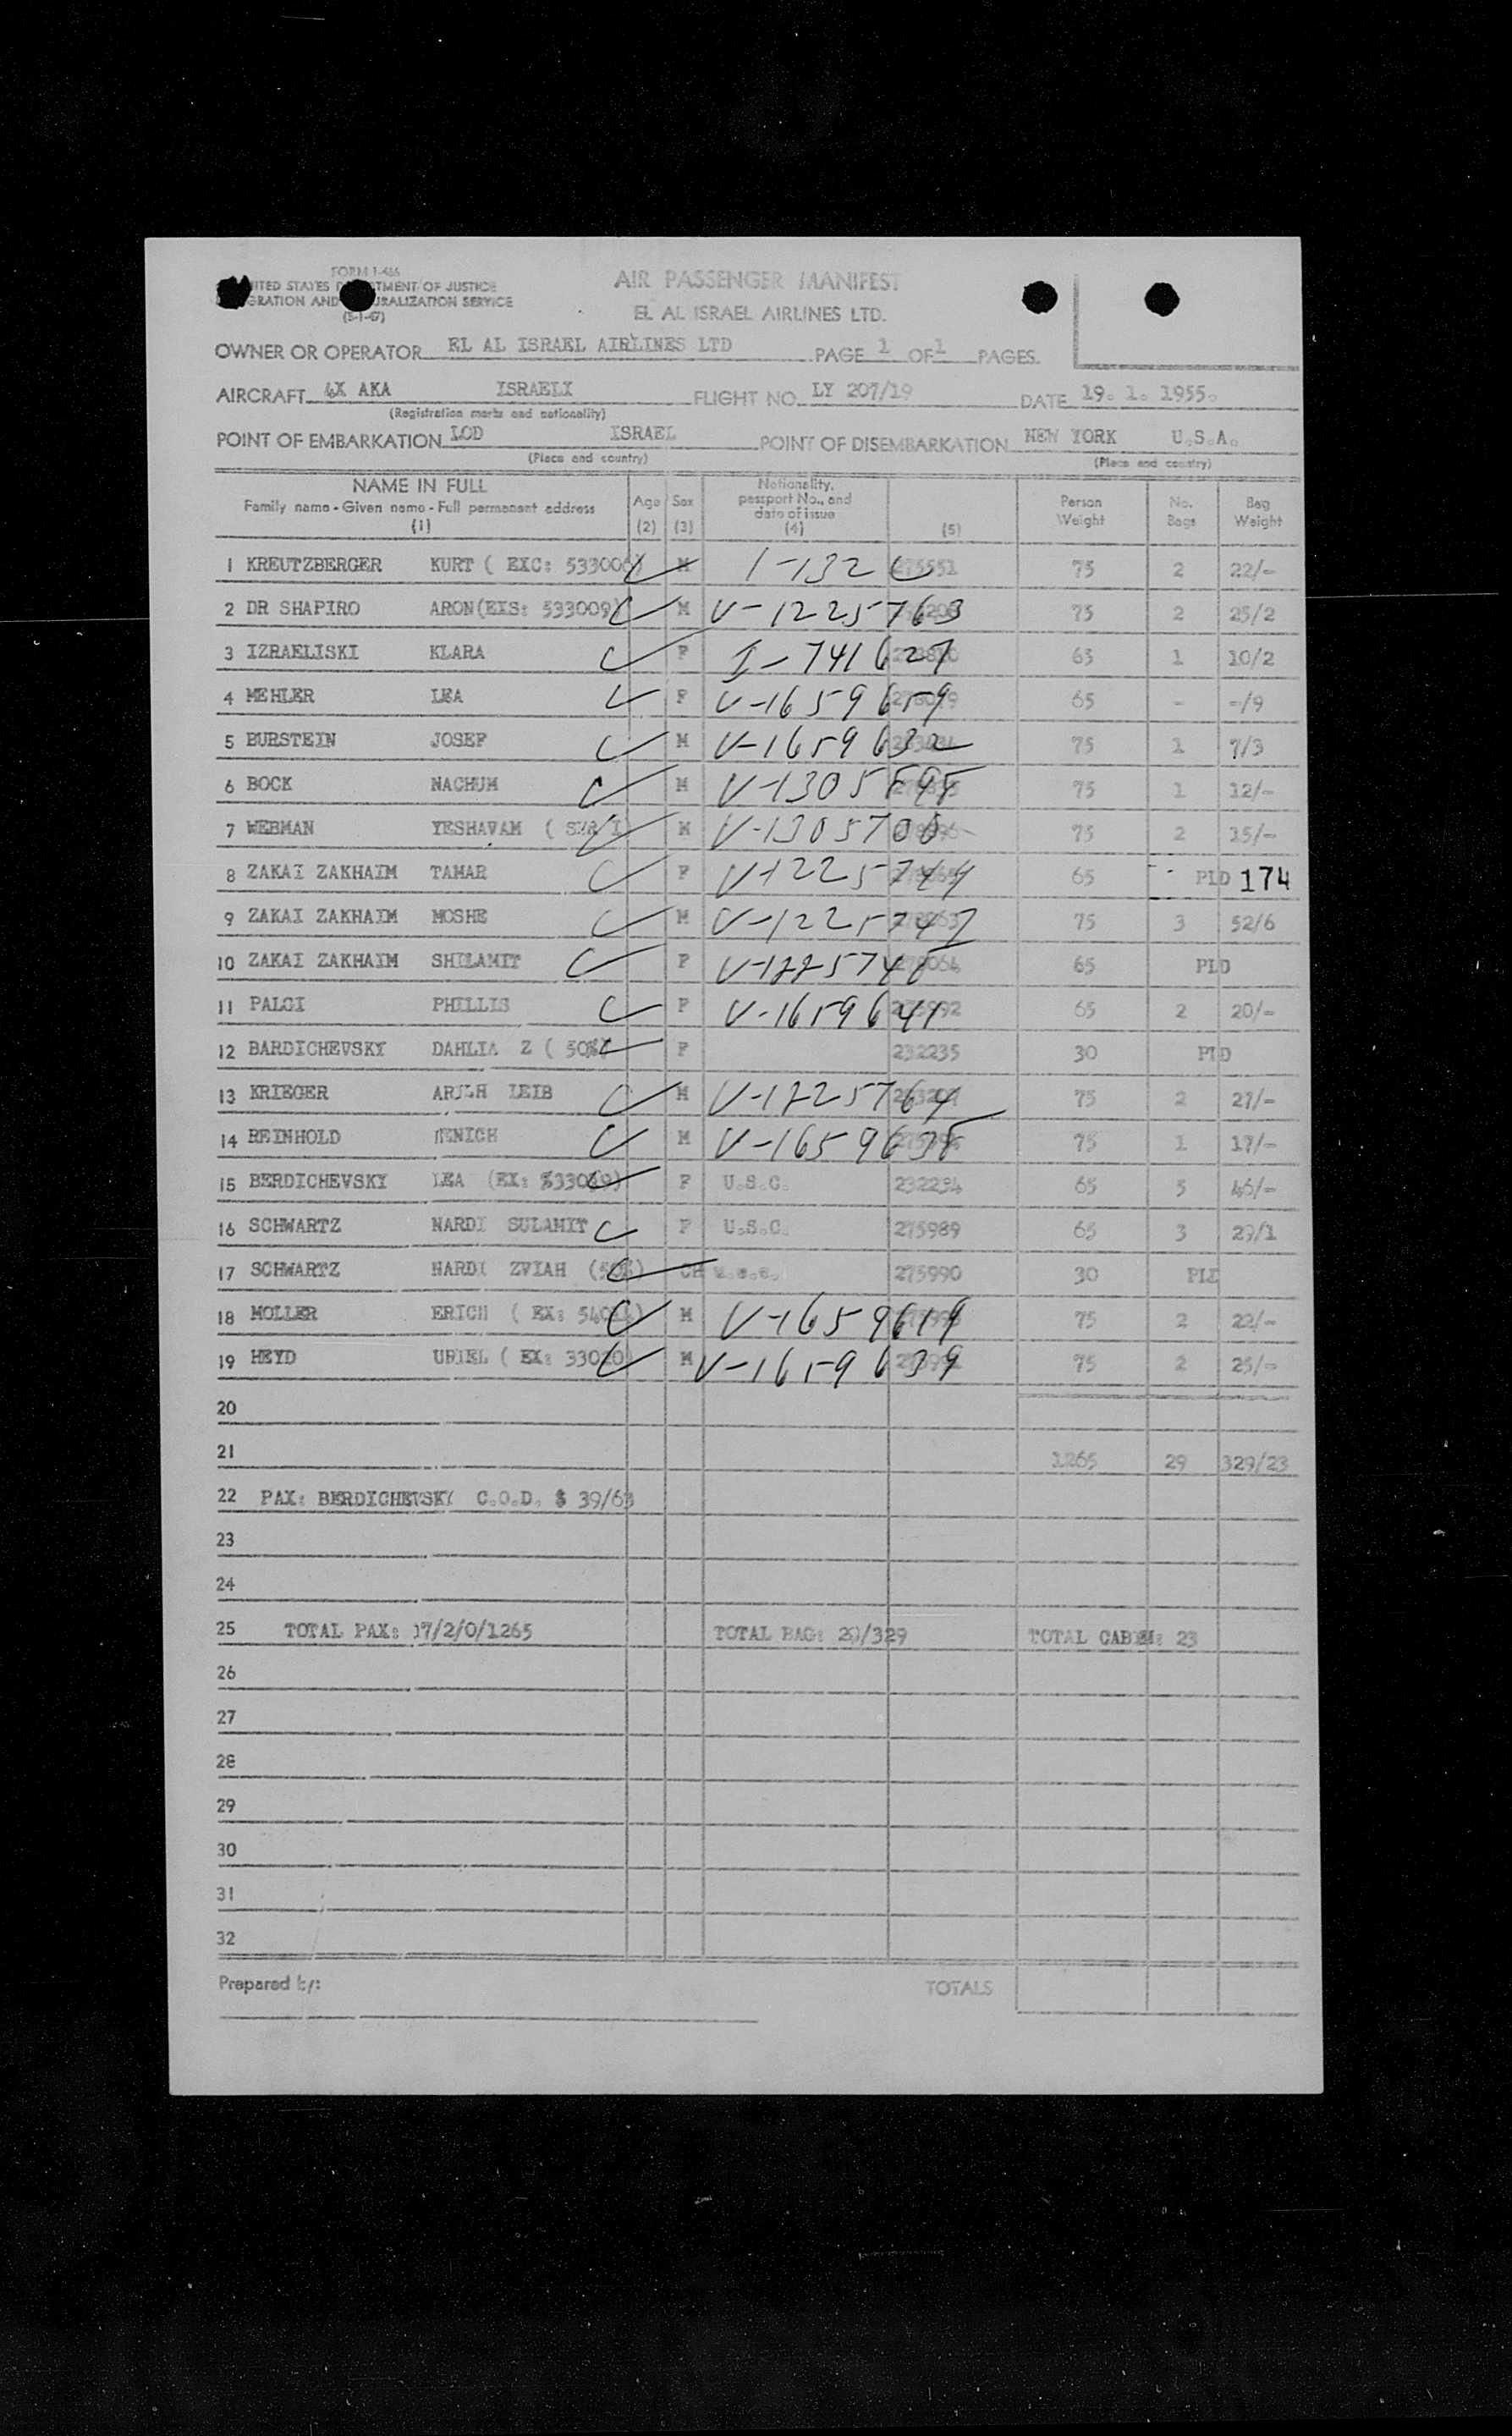 FORM I-466
UNITED STATES DEPARTMENT OF JUSTICE
IMMIGRATION AND NATURALIZATION SERVICE
(5-1-47)
AIR PASSENGER MANIFEST
EL AL ISRAEL AIRLINES LTD.
OWNER OR OPERATOR EL AL ISRAEL AIRLINES LTD PAGE 1 OF 1 PAGES.
AIRCRAFT 4X AKA ISRAELI FLIGHT NO. LY 207/19 DATE 19. 1. 1955.
(Registration marks and nationality)
POINT OF EMBARKATION LOD ISRAEL POINT OF DISEMBARKATION NEW YORK U.S.A.
(Place and country) (Place and country)
NAME IN FULL Family name - Given name - Full permanent address (1) Age (2) Sex (3) Nationality, passport No., and date of issue (4) (5) Person Weight No. Bags Bag Weight
1 KREUTZBERGER KURT ( EXC: M I-132 275551 75 2 22/-
2 DR SHAPIRO ARON(EXS: 533009) M V-1225763 75 2 25/2
3 IZRAELISKI KLARA F I-741627 65 1 10/2
4 MEHLER LEA F V-1659659 65 - -/9
5 BURSTEIN JOSEF M V-1659632 75 1 7/3
6 BOCK NACHUM M 75 1 12/-
7 WEBMAN YESHAVAM M V-1305706 75 2 15/-
8 ZAKAI ZAKHAIM TAMAR F V-1225749 65 PLD 174
9 ZAKAI ZAKHAIM MOSHE M V-1225747 75 3 52/6
10 ZAKAI ZAKHAIM SHULAMIT F V-1225748 65 PLD
11 PALGI PHILLIS F V-1659641 65 2 20/-
12 BARDICHEVSKY DAHLIA Z ( 50%) F 232235 30 PLD
13 KRIEGER ARIEH LEIB M V-1225764 75 2 27/-
14 REINHOLD HENICH M V-1659638 75 1 17/-
15 BERDICHEVSKY LEA (EX: F U.S.C. 232234 65 5 46/-
16 SCHWARTZ NARDI SULAMIT F U.S.C. 275989 65 3 29/1
17 SCHWARTZ NARDI ZVIAH (50%) CH U.S.C. 275990 30 PLD
18 MOLLER ERICH ( EX: M V-1659619 75 2 22/-
19 HEYD URIEL ( EX: M V-1659639 75 2 25/-
20
21 1265 29 329/23
22 PAX: BERDICHEVSKY C.O.D. $ 39/63
23
24
25 TOTAL PAX: 17/2/0/1265 TOTAL BAG: 29/329 TOTAL CABIN: 23
26
27
28
29
30
31
32
Prepared by: TOTALS